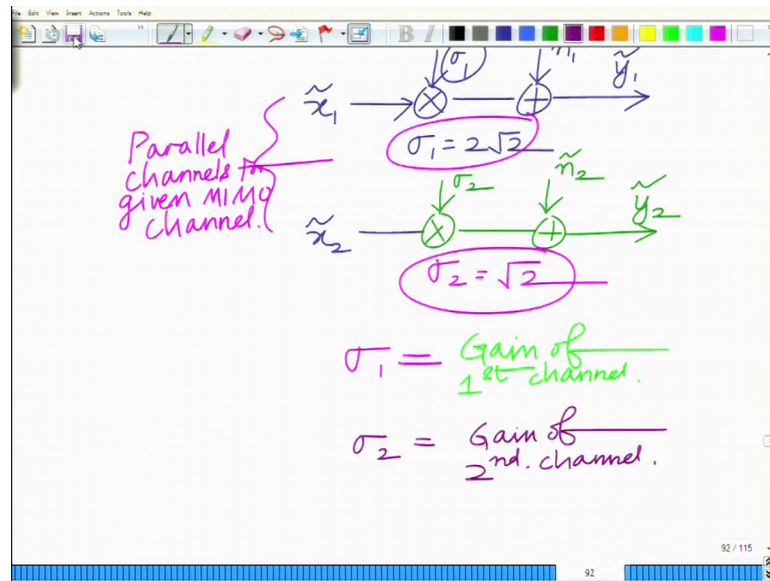 File Edit View Insert Actions Tools Help
B I
σ₁ ñ₁ ỹ₁
x̃₁ × +
σ₁ = 2√2
Parallel
channels for
given MIMO
channel.
σ₂ ñ₂ ỹ₂
x̃₂ × +
σ₂ = √2
σ₁ = Gain of
1st channel.
σ₂ = Gain of
2nd. channel.
92 / 115
92